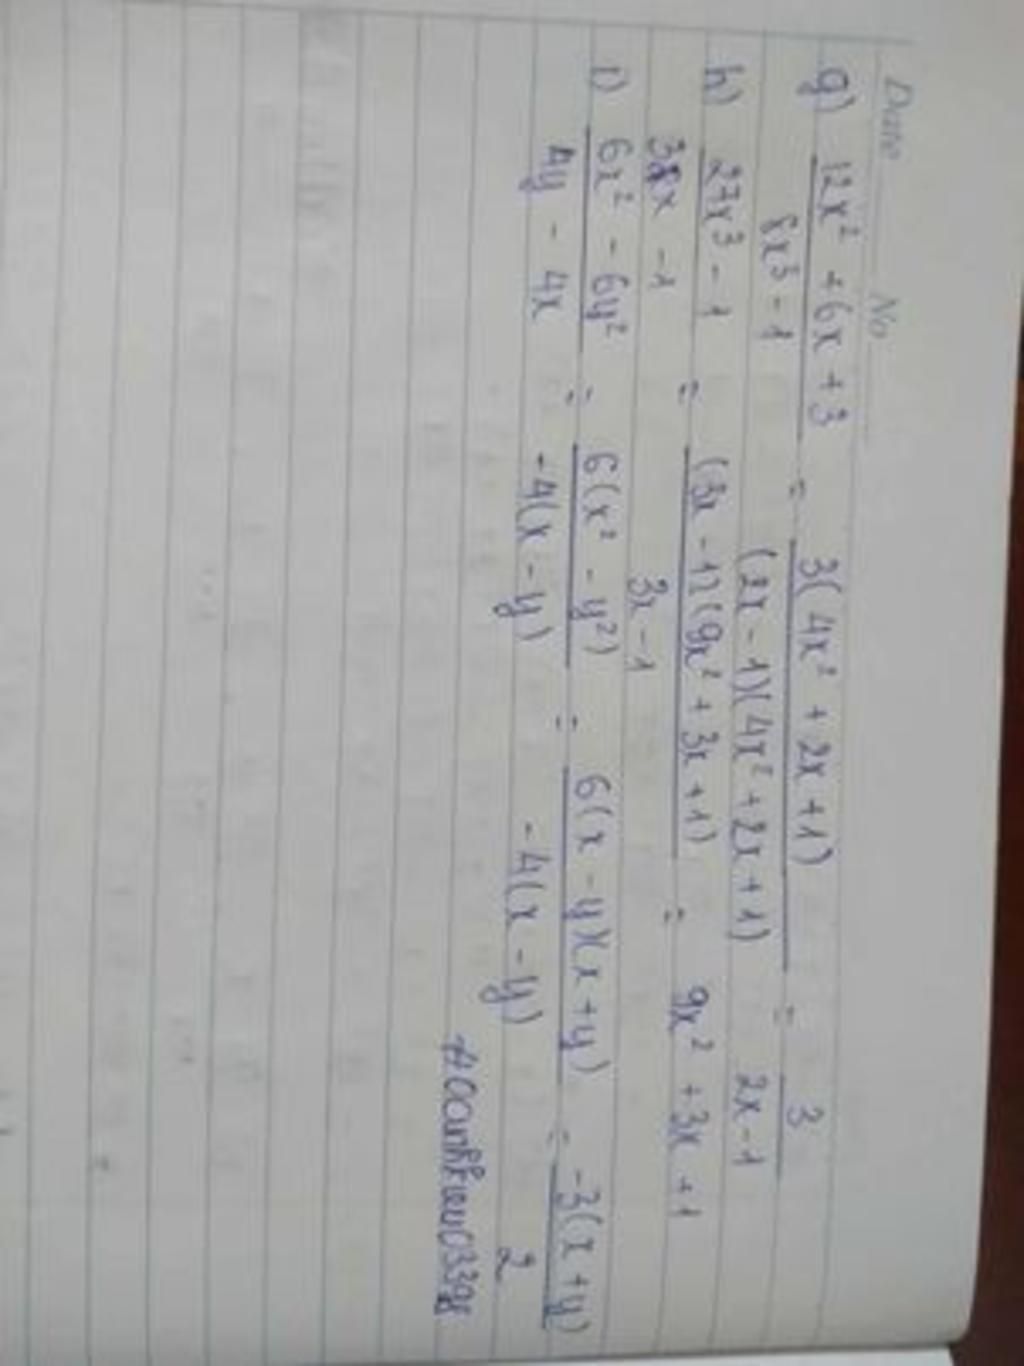 Date No
g) 12x² + 6x + 3 / 8x³ - 1 = 3(4x² + 2x + 1) / (2x - 1)(4x² + 2x + 1) = 3 / 2x - 1
h) 27x³ - 1 / 3x - 1 = (3x - 1)(9x² + 3x + 1) / 3x - 1 = 9x² + 3x + 1
i) 6x² - 6y² / 4y - 4x = 6(x² - y²) / -4(x - y) = 6(x - y)(x + y) / -4(x - y) = -3(x + y) / 2